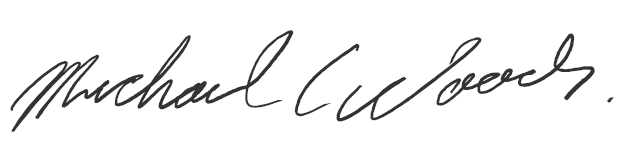 Michael C Woods.